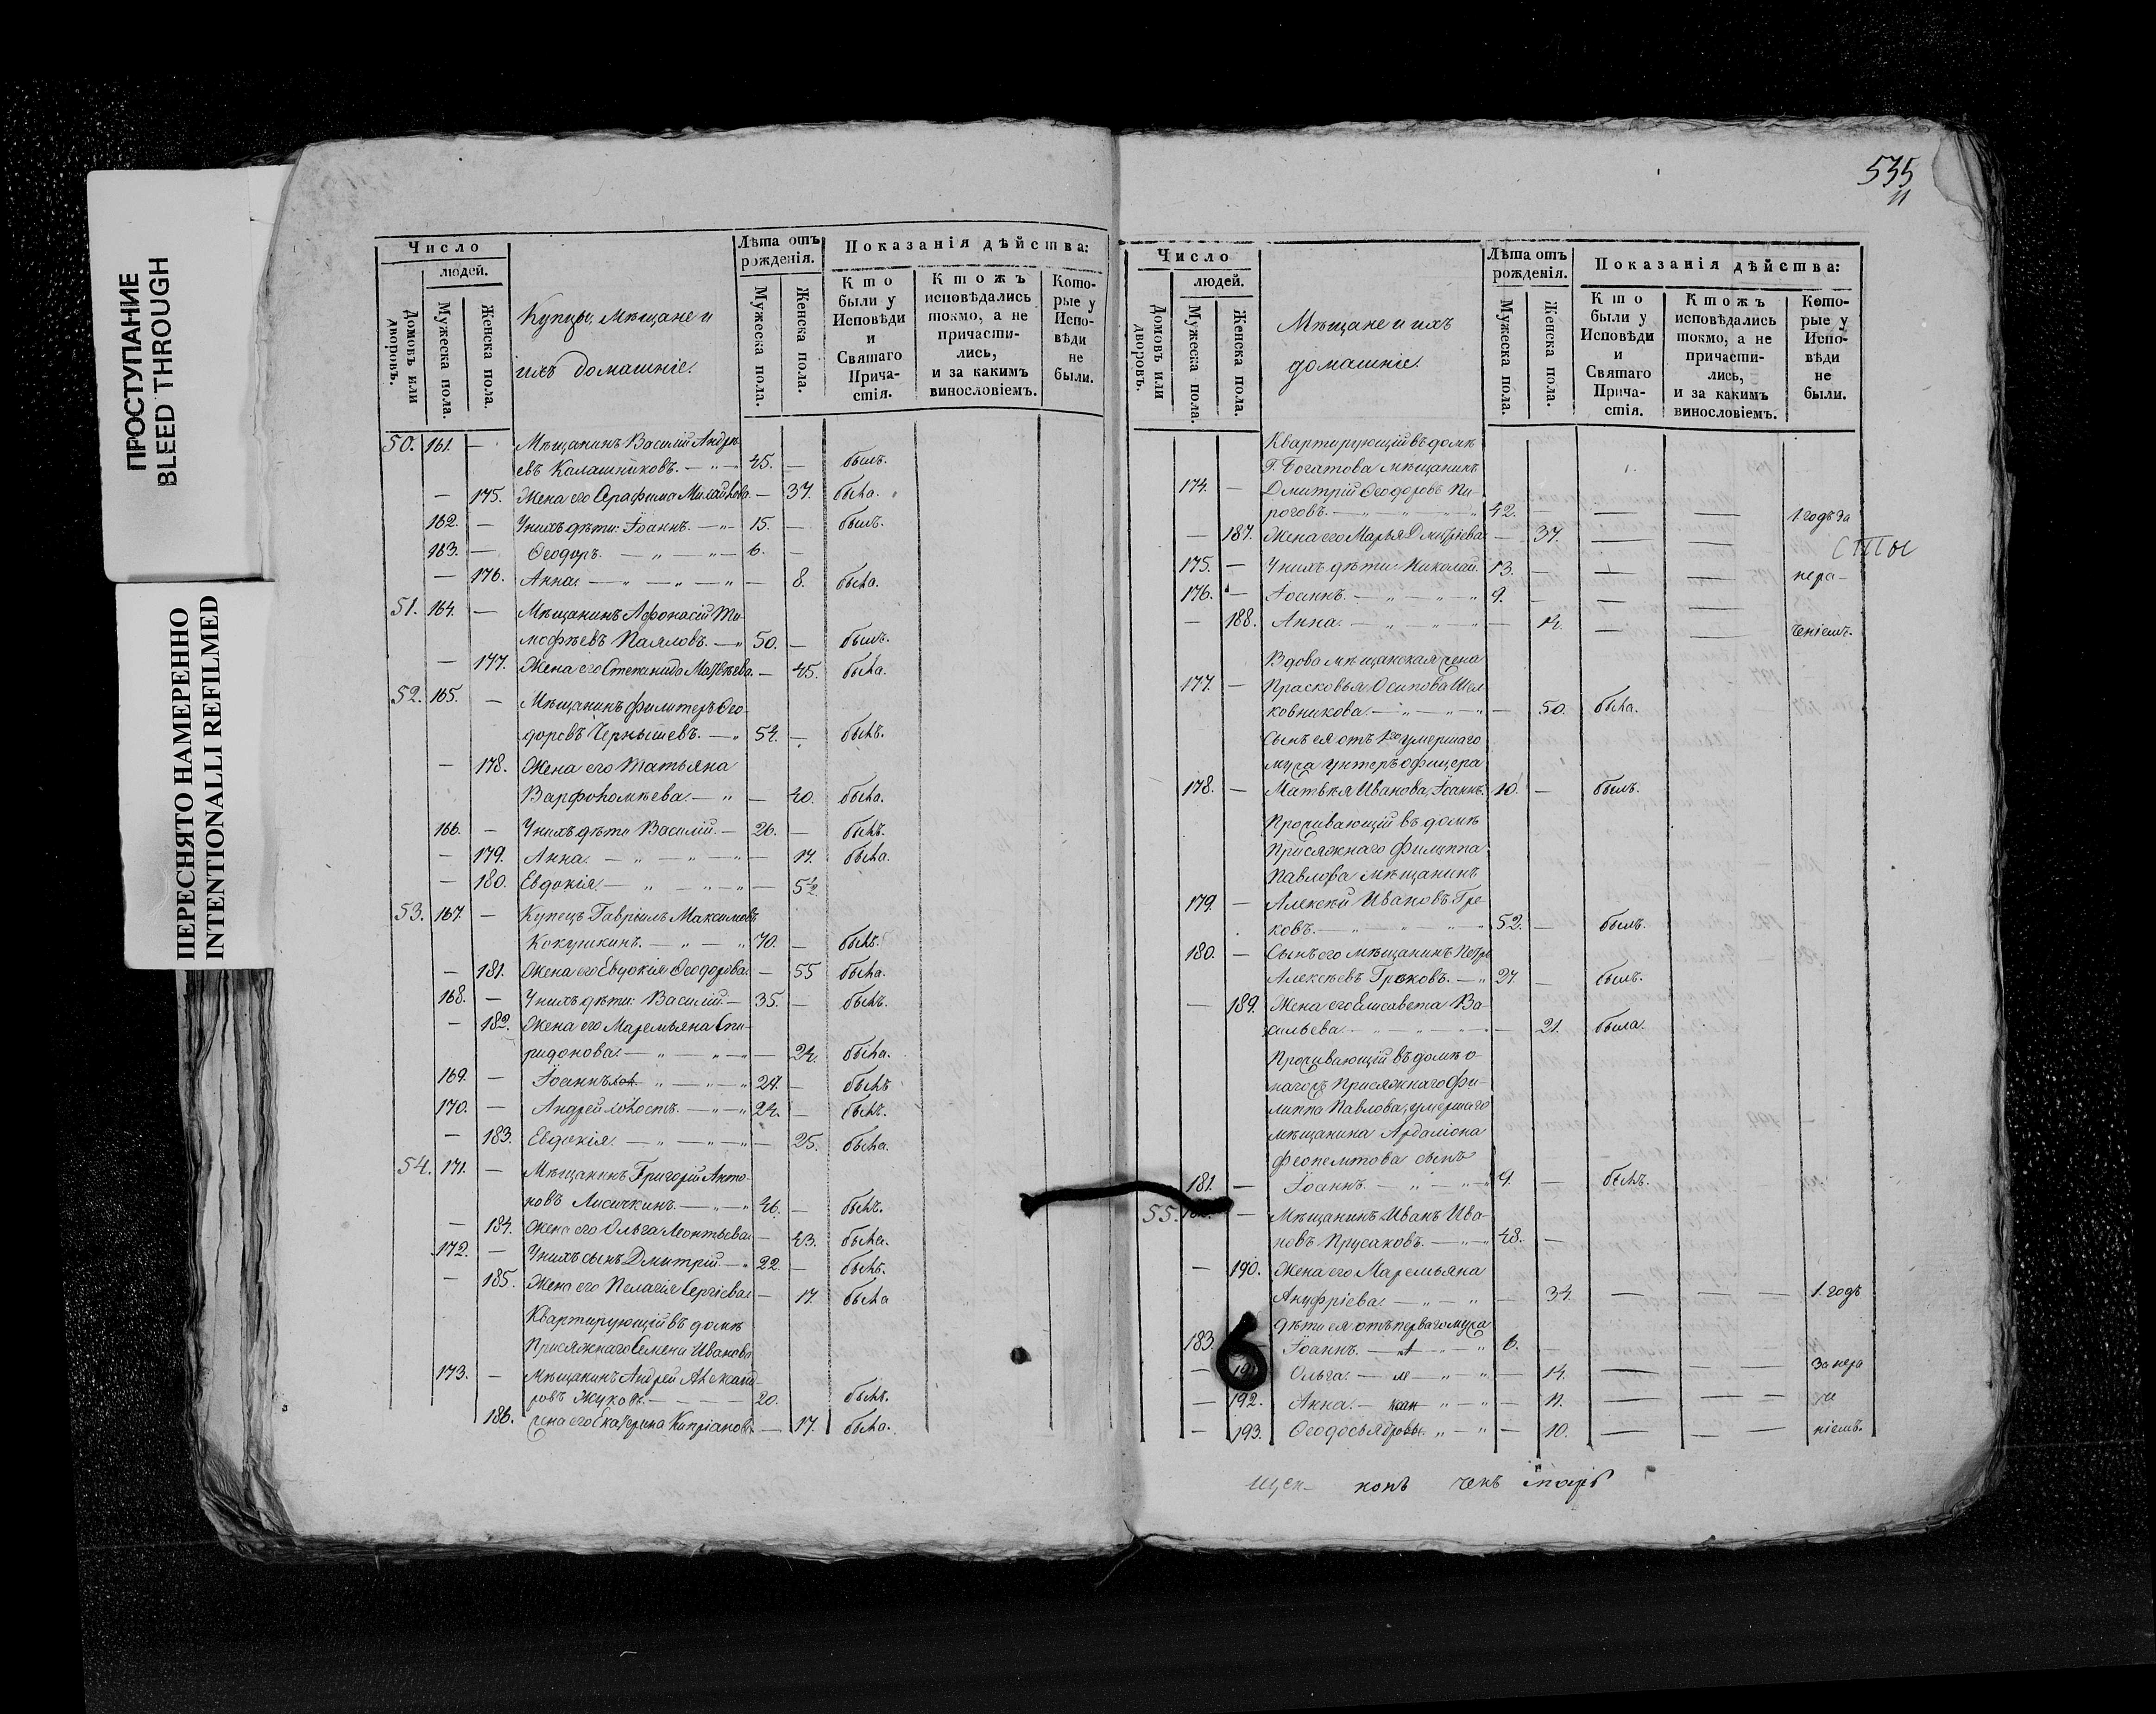 ПРОСТУПАНИЕ
BLEED THROUGH
ПЕРЕСНЯТО НАМЕРЕННО
INTENTIONALLI REFILMED
Число
людей.
Домовъ или дворовъ.
Мужеска пола.
Женска пола.
Купцы, Мѣщане и
ихъ домашніе.
Лѣта отъ рожденія.
Мужеска пола.
Женска пола.
Показанія дѣйства:
Кто были у Исповѣди и Святаго Прича-стія.
Ктожъ исповѣдались токмо, а не причасти-лись, и за какимъ винословіемъ.
Кото-рые у Испо-вѣди не были.
50. 161. — Мѣщанинъ Василій Андре-
евъ Калашниковъ. — „ — 45. — былъ.
— 175. Жена его Серафима Михайлова. — 37. была.
162. — У нихъ дѣти: Іоаннъ. — „ — 15. — былъ.
163. — Ѳеодоръ. — „ — „ — 6. —
— 176. Анна. — „ — „ — „ — 8. была.
51. 164. — Мѣщанинъ Афонасій Ти-
мофѣевъ Паяловъ. — „ 50. — былъ.
— 177. Жена его Степанида Матвѣева. — 45. была.
52. 165. — Мѣщанинъ Филитеръ Ѳео-
доровъ Чернышевъ. — „ 54. — былъ.
— 178. Жена его Татьяна
Варфоломѣева. — „ — 40. была.
166. — У нихъ дѣти Василій. — 26. — былъ.
— 179. Анна. — „ — „ — „ — 17. была.
— 180. Евдокія. — „ — „ — „ — 5½.
53. 167. — Купецъ Гавріилъ Максимовъ
Кокушкинъ. — „ — „ 70. — былъ.
— 181. Жена его Евдокія Ѳеодорова. — 55 была.
168. — У нихъ дѣти: Василій. — 35. — былъ.
— 182. Жена его Маремьяна Спи-
ридонова. — „ — „ — 24. была.
169. — Іоаннъ — „ — „ — „ 27. — былъ
170. — Андрей холостъ. — „ — „ 24. — былъ.
— 183. Евдокія. — „ — „ — „ — 25. была.
54. 171. — Мѣщанинъ Григорій Анто-
новъ Лисичкинъ. — „ — „ 46. — былъ.
— 184. Жена его Ольга Леонтьева. — 43. была.
172. — У нихъ сынъ Дмитрій. — „ 22. — былъ.
— 185. Жена его Пелагія Сергіева. — 17. была
Квартирующій въ домѣ
Присяжнаго Семена Иванова
173. — Мѣщанинъ Андрей Александ-
ровъ Жуковъ. — — — — 20. былъ.
186. жена его Екатерина Кипріанова — 17. была.
535
11
Число
людей.
Домовъ или дворовъ.
Мужеска пола.
Женска пола.
Мѣщане и ихъ
домашніе.
Лѣта отъ рожденія.
Мужеска пола.
Женска пола.
Показанія дѣйства:
Кто были у Исповѣди и Святаго Прича-стія.
Ктожъ исповѣдались токмо, а не причасти-лись, и за какимъ винословіемъ.
Кото-рые у Испо-вѣди не были.
Квартирующій въ домѣ
Г. Богатова мѣщанинъ
174. — Дмитрій Ѳеодоровъ Пи-
роговъ. — „ — „ — „ 42. — — — 1 годъ за
— 187. Жена его Марья Дмитріева — 37. — —
175. — У нихъ дѣти: Николай. 13. — — — нера-
176. — Іоаннъ. — „ — „ — „ 9. — — —
— 188. Анна. — „ — „ — „ — 12. — — ченіемъ.
Вдова мѣщанская жена
177. — Прасковья Осипова Шел
ковникова. — „ — „ — „ — 50. была.
Сынъ ея отъ 1го умершаго
мужа унтеръ офицера
178. — Матвѣя Иванова, Іоаннъ. 10. — былъ.
Проживающій въ домѣ
Присяжнаго Филиппа
Павлова мѣщанинъ
179. — Алексѣй Ивановъ Гре
ковъ. — „ — „ — „ 52. — былъ.
180. — Сынъ его мѣщанинъ Петръ
Алексѣевъ Грековъ. — „ 27. — былъ.
— 189. Жена его Елисавета Ва-
сильева. — „ — „ — „ — 21. была.
Проживающій въ домѣ о-
нагожъ Присяжнаго Фи-
липпа Павлова, умершаго
мѣщанина Ардаліона
Феопемтова сынъ
181. — Іоаннъ. — „ — „ — „ 9. — былъ.
55. — Мѣщанинъ Иванъ Ива-
новъ Прусаковъ. — „ — „ 48. —
— 190. Жена его Маремьяна
Ануфріева. — „ — „ — 34. — — — 1. годъ
дѣти ея отъ перваго мужа
183. Іоаннъ. — „ — „ 6. —
— Ольга. — „ — „ — 14. — — — За нера
— 192. Анна. — „ — „ — 11. — — —
— 193. Ѳеодосья — „ — „ — 10. — — — ніемъ.